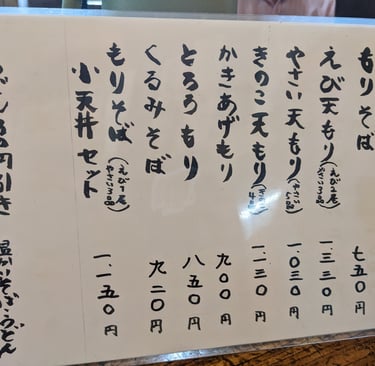 もりそば 七五〇円
えび天もり(えび2尾 やさい3品) 一、三三〇円
やさい天もり(やさい5品) 一、〇三〇円
きのこ天もり(きのこ4品) 一、一三〇円
かきあげもり 九〇〇円
とろろもり 八五〇円
くるみそば 九二〇円
もりそば(えび1尾 やさい3品)
小天丼セット 一、一五〇円
円引き
そば・うどん